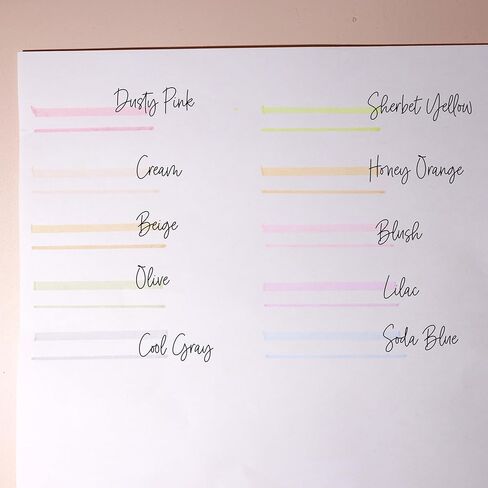 Dusty Pink
Cream
Beige
Olive
Cool Gray
Sherbet Yellow
Honey Orange
Blush
Lilac
Soda Blue